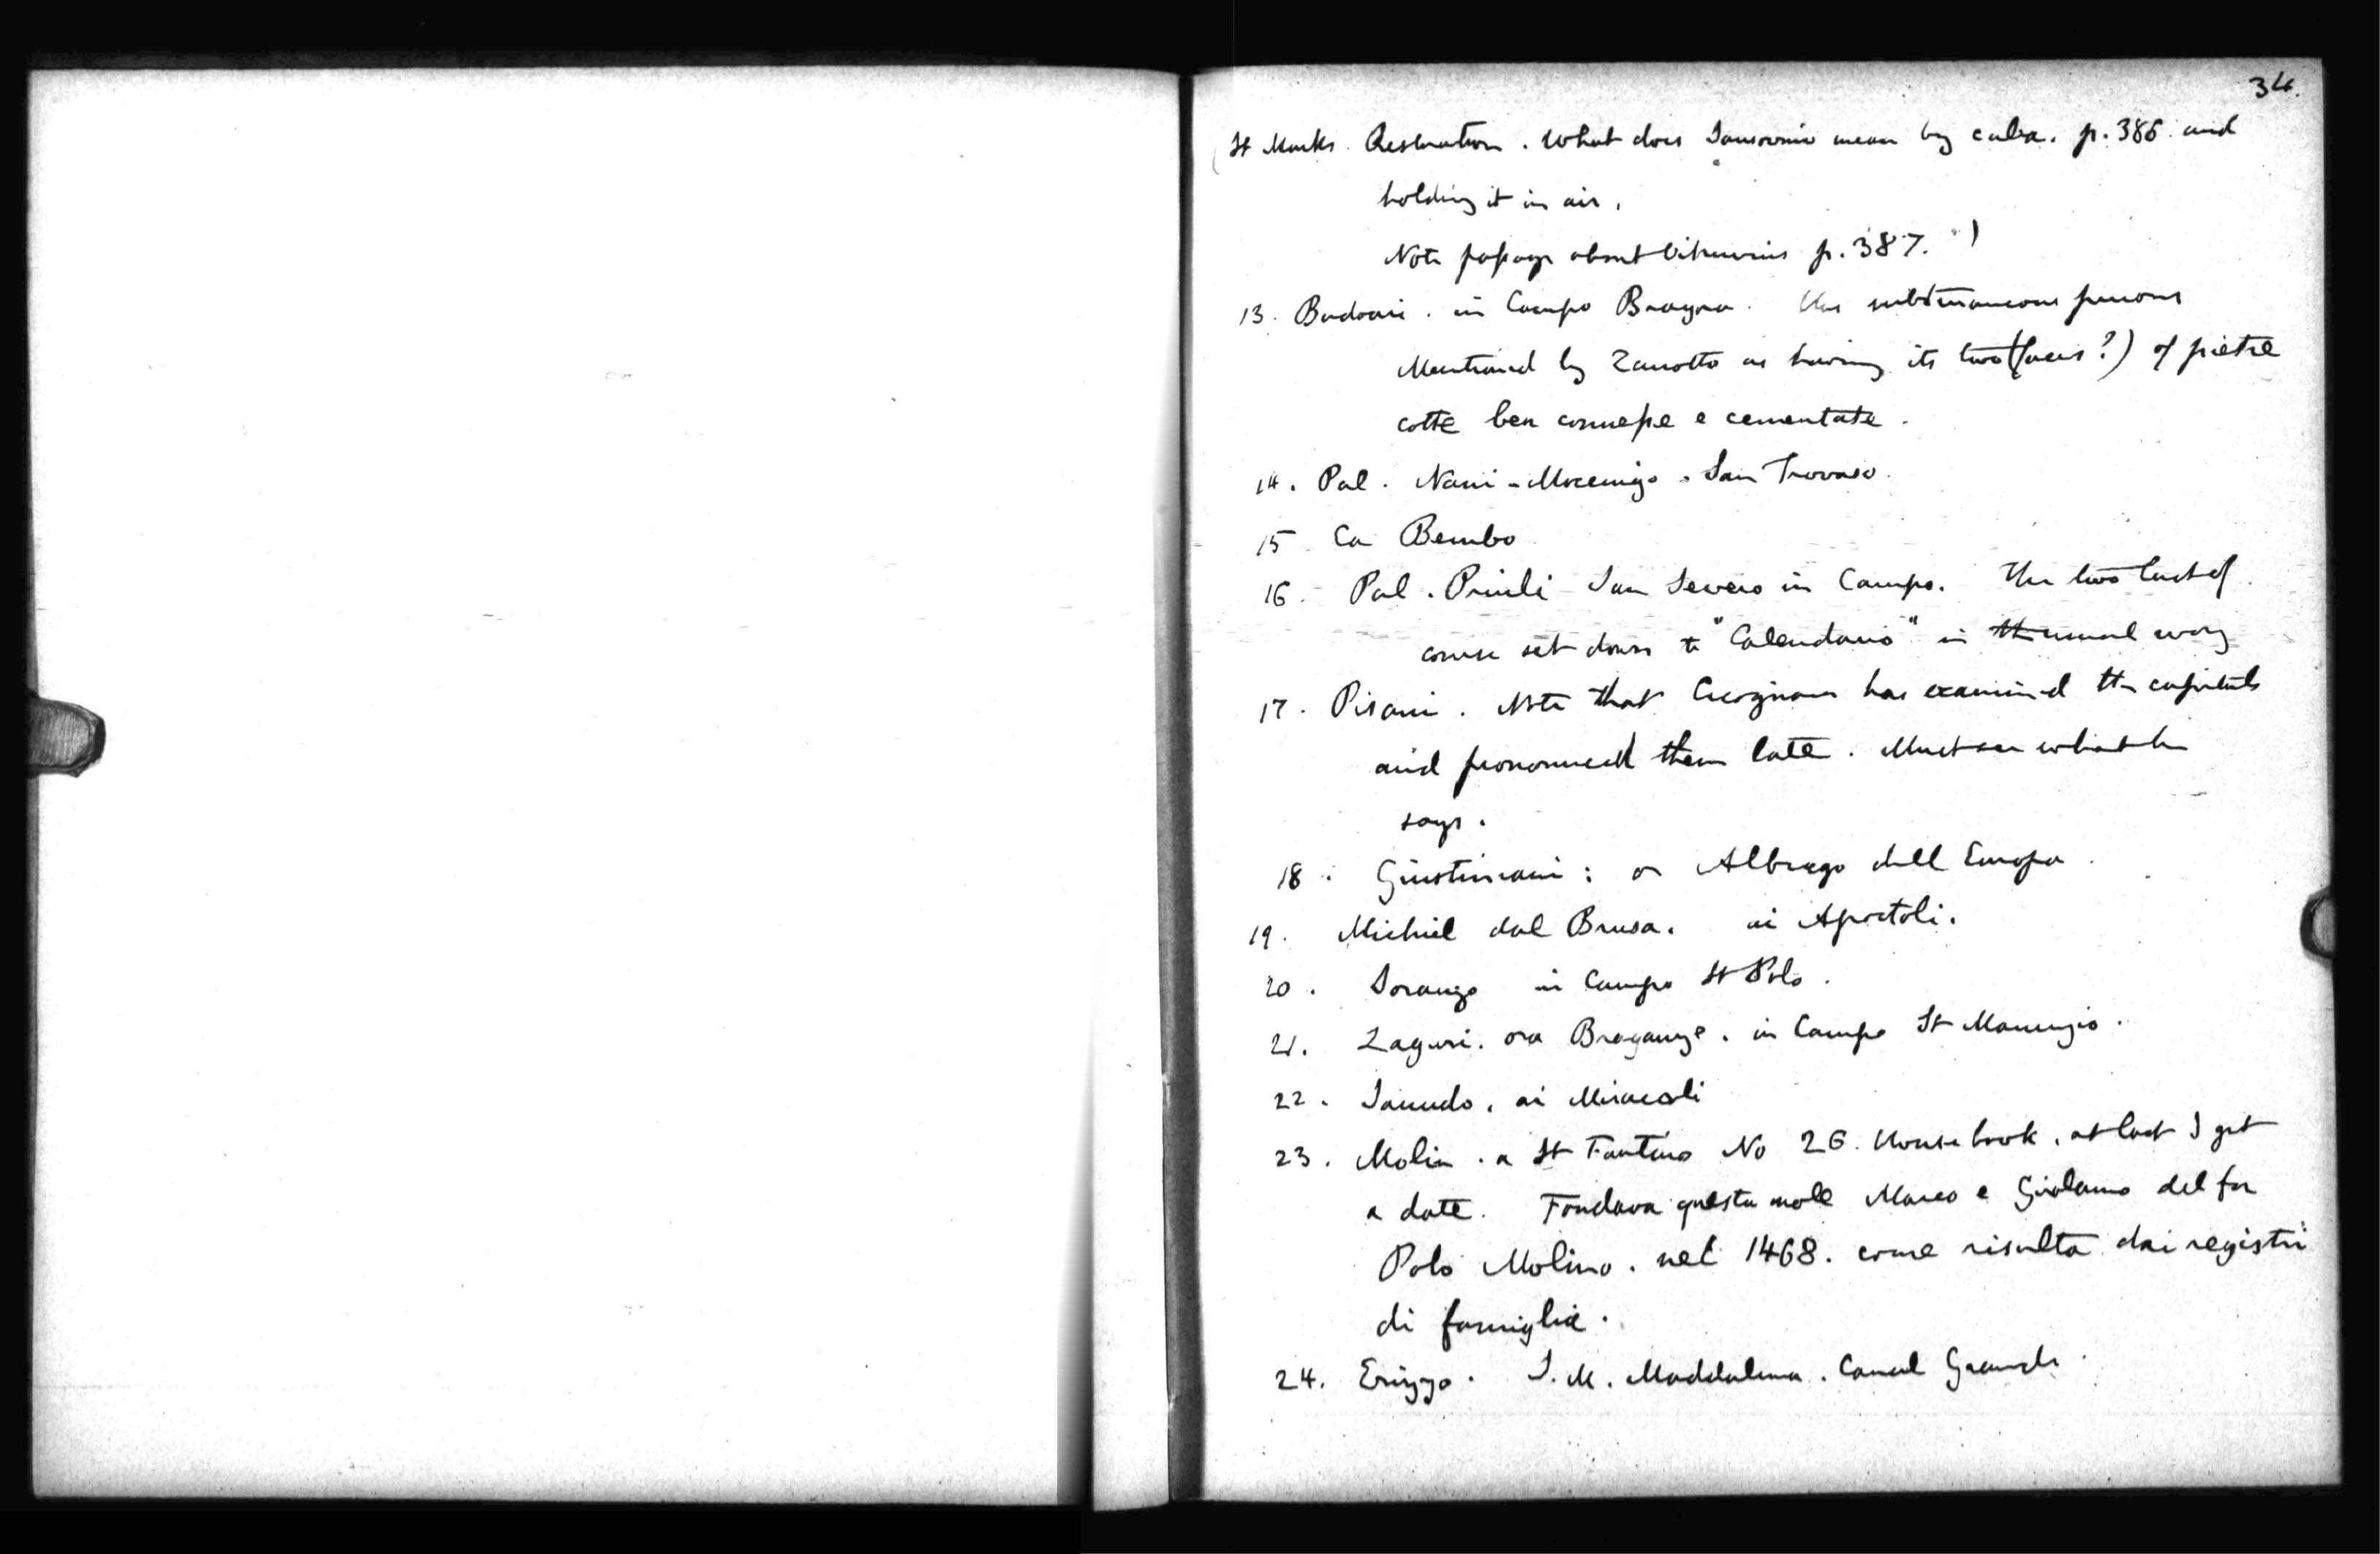 34.
(St Marks. Restoration. What does Sansovino mean by cuba. p. 386 and
holding it in air.
Note passage about Vitruvius p. 387.)
13. Badoari. in Campo Bragora. Has subterraneous
Mentioned by Zanotto as having its two (faces?) of pietre
cotte ben connesse e cementate.
14. Pal. Nani-Mocenigo. San Trovaso.
15 Ca Bembo
16. Pal. Priuli San Severo in Campo. The two last of
course set down to "Calendario" in the usual way
17. Pisani. Note that Cicognara has examined the capitals
and pronounced them late. Must see what he
says.
18. Giustiniani: or Albergo dell Europa.
19. Michiel dal Brusa. ai Apostoli.
20. Soranzo in Campo St Polo.
21. Zaguri. ora Braganze. in Campo St Maurizio.
22. Sanudo. ai Miracoli
23. Molin. a St Fantino No 26. House book. at last I get
a date. Fondava questa mole Marco e Girolamo del fu
Polo Molino. nel 1468. come risulta dai registri
di famiglia.
24. Erizzo. S. M. Maddalena. Canal Grande.